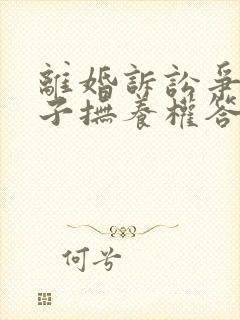 離婚訴訟爭
子撫養權答
何兮